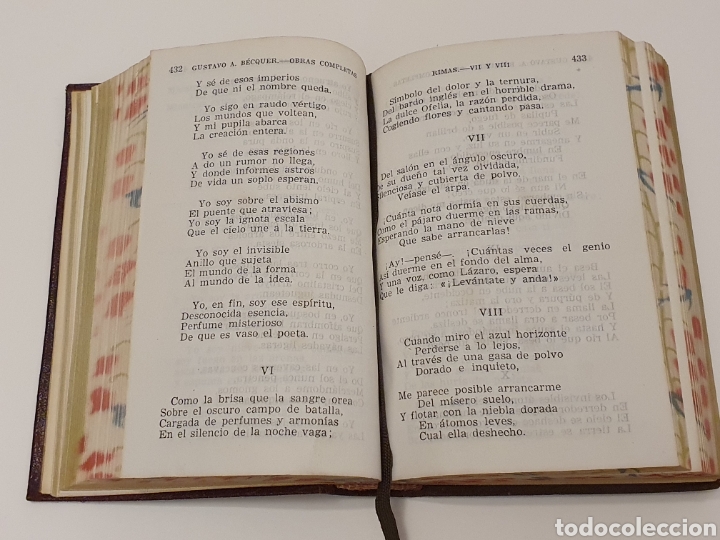 432 GUSTAVO A. BÉCQUER.—OBRAS COMPLETAS
Y sé de esos imperios
De que ni el nombre queda.
Yo sigo en raudo vértigo
Los mundos que voltean,
Y mi pupila abarca
La creación entera.
Yo sé de esas regiones
A do un rumor no llega,
Y donde informes astros
De vida un soplo esperan.
Yo soy sobre el abismo
El puente que atraviesa;
Yo soy la ignota escala
Que el cielo une a la tierra.
Yo soy el invisible
Anillo que sujeta
El mundo de la forma
Al mundo de la idea.
Yo, en fin, soy ese espíritu,
Desconocida esencia,
Perfume misterioso
De que es vaso el poeta.
VI
Como la brisa que la sangre orea
Sobre el oscuro campo de batalla,
Cargada de perfumes y armonías
En el silencio de la noche vaga;
RIMAS.—VII Y VIII 433
Símbolo del dolor y la ternura,
Del bardo inglés en el horrible drama,
La dulce Ofelia, la razón perdida,
Cogiendo flores y cantando pasa.
VII
Del salón en el ángulo oscuro,
De su dueño tal vez olvidada,
Silenciosa y cubierta de polvo,
Veíase el arpa.
¡Cuánta nota dormía en sus cuerdas,
Como el pájaro duerme en las ramas,
Esperando la mano de nieve
Que sabe arrancarlas!
¡Ay!—pensé—. ¡Cuántas veces el genio
Así duerme en el fondo del alma,
Y una voz, como Lázaro, espera
Que le diga: «¡Levántate y anda!»
VIII
Cuando miro el azul horizonte
Perderse a lo lejos,
Al través de una gasa de polvo
Dorado e inquieto,
Me parece posible arrancarme
Del mísero suelo,
Y flotar con la niebla dorada
En átomos leves,
Cual ella deshecho.
todocoleccion